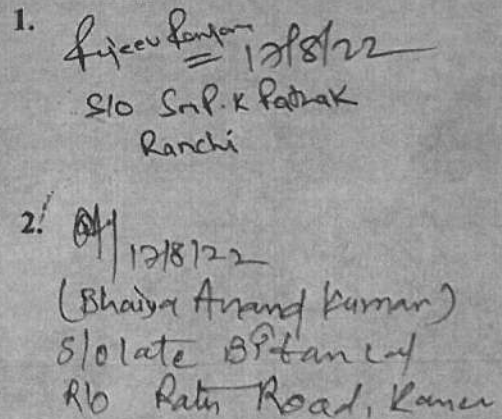 1. Rajeev Ranjan 17/8/22
S/o Sri P.K Pathak
Ranchi
2. 17/8/22
(Bhaiya Anand Kumar)
S/o late
R/o Ratu Road,